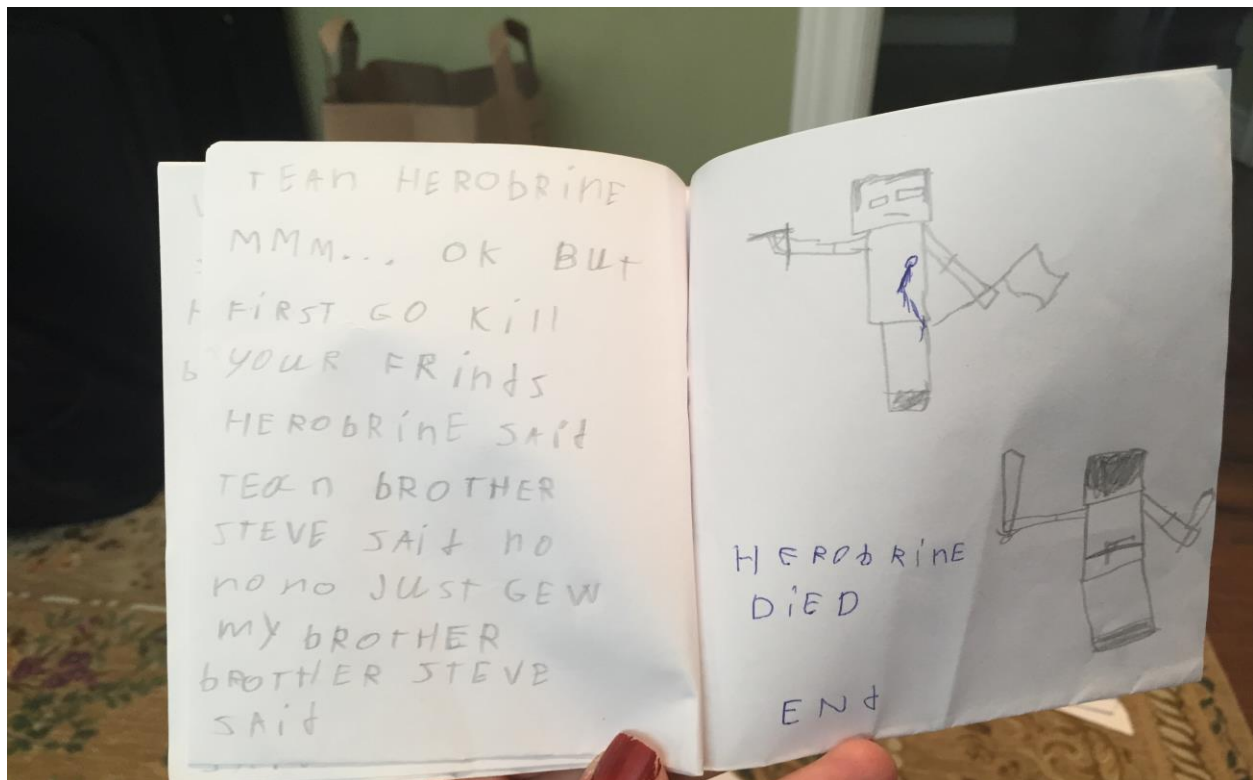 TEAn HERObRinE
MMM... OK BUt
FiRST GO Kill
YOUR FRinds
HEROBRinE SAid
TEan bROTHER
STEVE SAid no
no no JUst GEW
my bROtHER
bROTHER STEVE
SAid
HEROBRinE
DiED
ENd